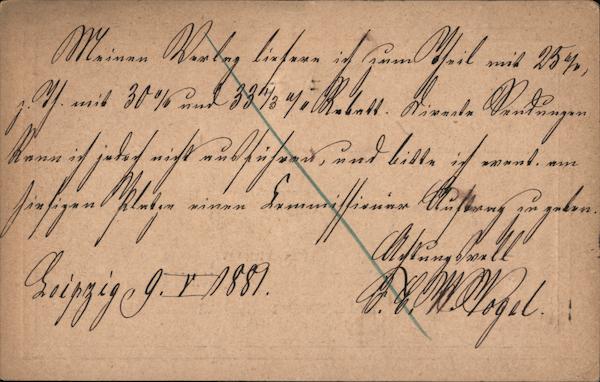 Meinen Verlag liefere ich zum Theil mit 25%,
z. Th. mit 30% und 33 1/3 % Rabatt. Directe Sendungen
kann ich jedoch nicht ausführen, und bitte ich event. am
hiesigen Platze einen Commissionär Auftrag zu geben.
Achtungsvoll
Leipzig 9. V 1881.
F. C. W. Vogel.